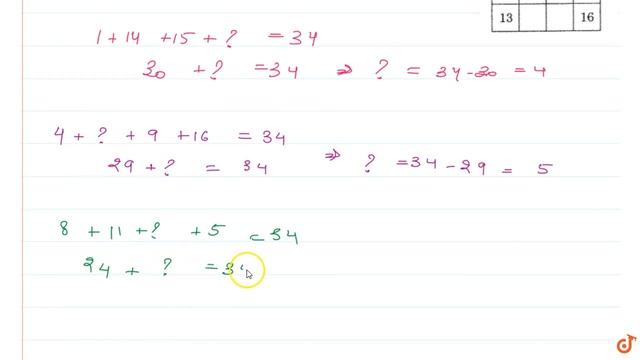 13 16
1 + 14 + 15 + ? = 34
30 + ? = 34 ⇒ ? = 34 - 30 = 4
4 + ? + 9 + 16 = 34
29 + ? = 34 ⇒ ? = 34 - 29 = 5
8 + 11 + ? + 5 = 34
24 + ? = 3